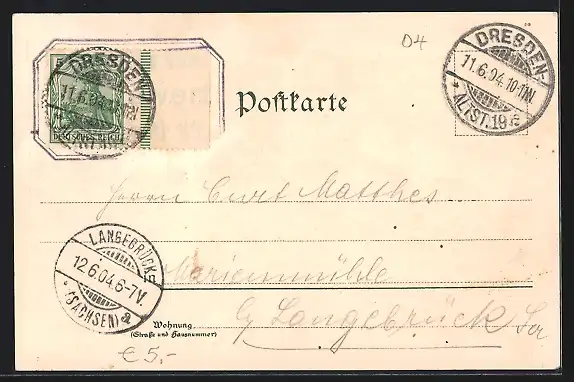 D4
5
DEUTSCHES REICH
DRESDEN-
11.6.04.
DRESDEN-
11.6.04.10-11V.
* ALTST. 19 *
Postkarte
Herrn Curt Matthes
Marienmühle
b/ Langebrück Sa
LANGEBRÜCK
12.6.04.6-7V.
* (SACHSEN) a
Wohnung
(Straße und Hausnummer)
€ 5,-